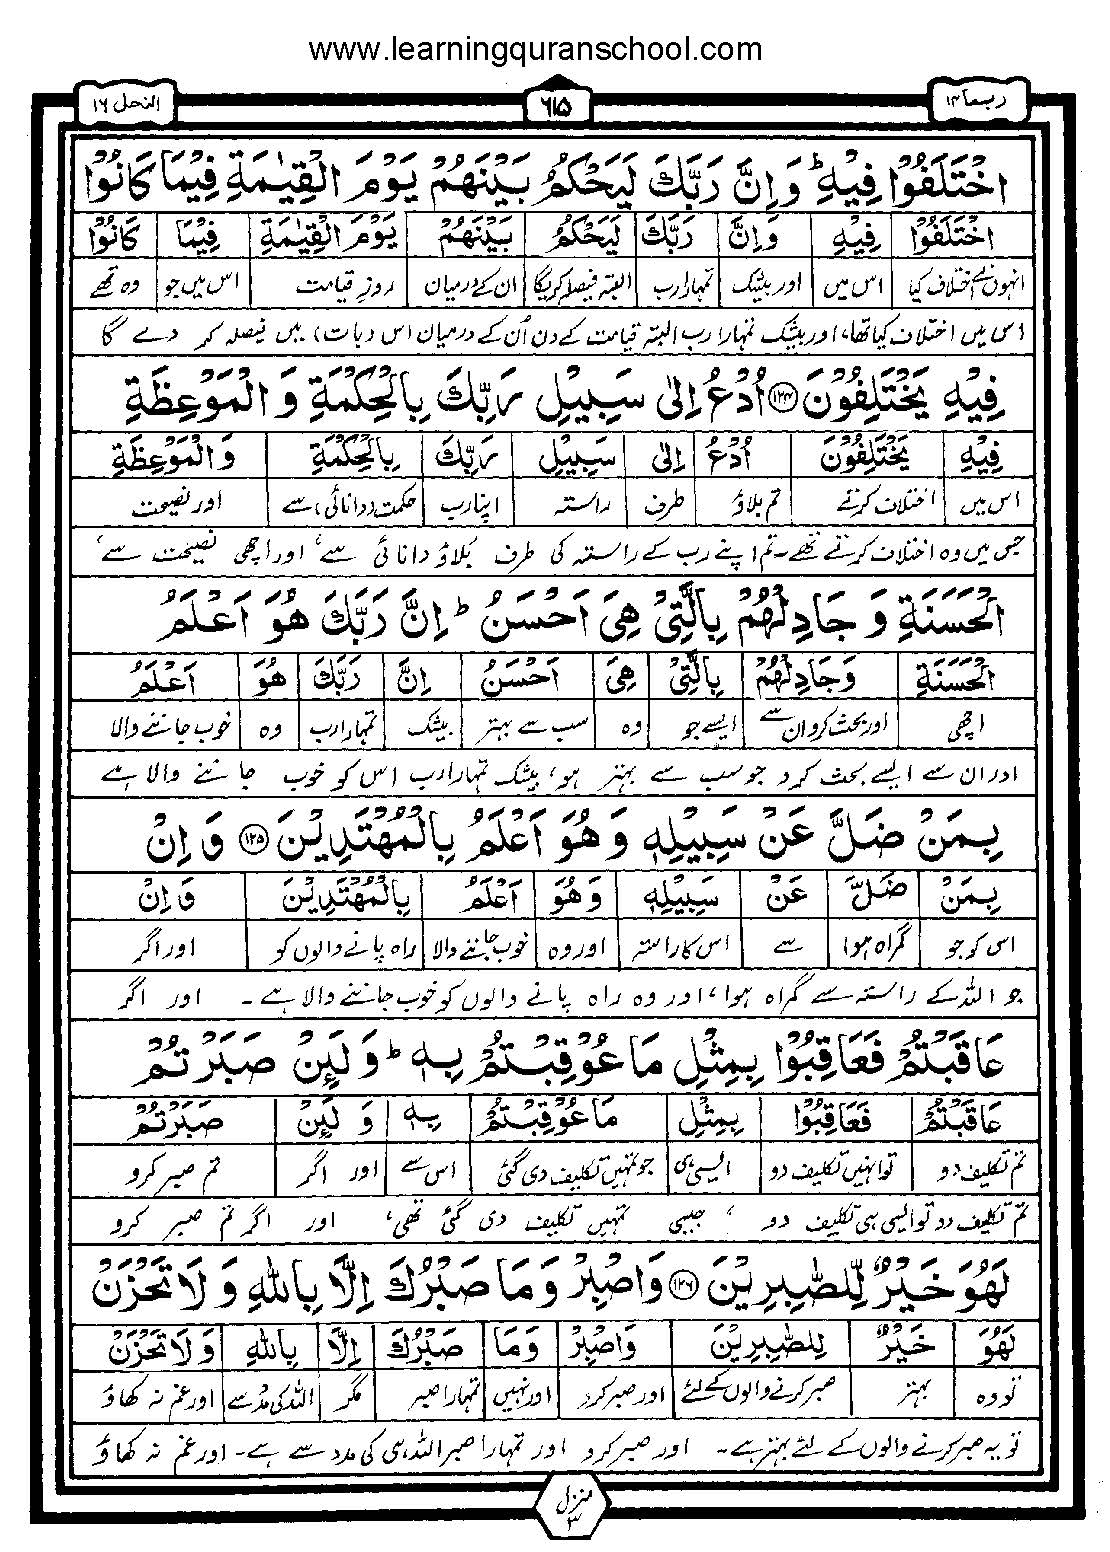 www.learningquranschool.com
ربما ۱۴
۶۱۵
النحل ۱۶
اخْتَلَفُوْا فِیْهِ ؕ وَ اِنَّ رَبَّكَ لَیَحْكُمُ بَیْنَهُمْ یَوْمَ الْقِیٰمَةِ فِیْمَا كَانُوْا
اخْتَلَفُوْا فِیْهِ وَاِنَّ رَبَّكَ لَیَحْكُمُ بَیْنَهُمْ یَوْمَ الْقِیٰمَةِ فِیْمَا كَانُوْا
انہوں نے اختلاف کیا اس میں اور بیشک تمہارا رب البتہ فیصلہ کریگا ان کے درمیان روزِ قیامت اس میں جو وہ تھے
اس میں اختلاف کیا تھا، اور بیشک تمہارا رب البتہ قیامت کے دن اُن کے درمیان اس (بات) میں فیصلہ کر دے گا
فِیْهِ یَخْتَلِفُوْنَ ۱۲۴ اُدْعُ اِلٰی سَبِیْلِ رَبِّكَ بِالْحِكْمَةِ وَ الْمَوْعِظَةِ
فِیْهِ یَخْتَلِفُوْنَ اُدْعُ اِلٰی سَبِیْلِ رَبِّكَ بِالْحِكْمَةِ وَالْمَوْعِظَةِ
اس میں اختلاف کرتے تم بلاؤ طرف راستہ اپنا رب حکمت (دانائی) سے اور نصیحت
جس میں وہ اختلاف کرتے تھے۔ تم اپنے رب کے راستہ کی طرف بلاؤ دانائی سے، اور اچھی نصیحت سے،
الْحَسَنَةِ وَ جَادِلْهُمْ بِالَّتِیْ هِیَ اَحْسَنُ ؕ اِنَّ رَبَّكَ هُوَ اَعْلَمُ
الْحَسَنَةِ وَجَادِلْهُمْ بِالَّتِیْ هِیَ اَحْسَنُ اِنَّ رَبَّكَ هُوَ اَعْلَمُ
اچھی اور بحث کرو ان سے ایسے جو وہ سب سے بہتر بیشک تمہارا رب وہ خوب جاننے والا
اور ان سے ایسے بحث کرو جو سب سے بہتر ہو، بیشک تمہارا رب اس کو خوب جاننے والا ہے
بِمَنْ ضَلَّ عَنْ سَبِیْلِهٖ وَ هُوَ اَعْلَمُ بِالْمُهْتَدِیْنَ ۱۲۵ وَ اِنْ
بِمَنْ ضَلَّ عَنْ سَبِیْلِهٖ وَهُوَ اَعْلَمُ بِالْمُهْتَدِیْنَ وَاِنْ
اس کو جو گمراہ ہوا سے اس کا راستہ اور وہ خوب جاننے والا راہ پانے والوں کو اور اگر
جو اللہ کے راستہ سے گمراہ ہوا، اور وہ راہ پانے والوں کو خوب جاننے والا ہے۔ اور اگر
عَاقَبْتُمْ فَعَاقِبُوْا بِمِثْلِ مَا عُوْقِبْتُمْ بِهٖ ؕ وَ لَئِنْ صَبَرْتُمْ
عَاقَبْتُمْ فَعَاقِبُوْا بِمِثْلِ مَا عُوْقِبْتُمْ بِهٖ وَ لَئِنْ صَبَرْتُمْ
تم تکلیف دو تو انہیں تکلیف دو ایسی ہی جو تمہیں تکلیف دی گئی اس سے اور اگر تم صبر کرو
تم تکلیف دو تو ایسی ہی تکلیف دو، جیسی تمہیں تکلیف دی گئی تھی، اور اگر تم صبر کرو
لَهُوَ خَیْرٌ لِّلصّٰبِرِیْنَ ۱۲۶ وَاصْبِرْ وَ مَا صَبْرُكَ اِلَّا بِاللّٰهِ وَ لَا تَحْزَنْ
لَهُوَ خَیْرٌ لِلصّٰبِرِیْنَ وَاصْبِرْ وَمَا صَبْرُكَ اِلَّا بِاللّٰهِ وَ لَا تَحْزَنْ
تو وہ بہتر صبر کرنے والوں کے لئے اور صبر کرو اور نہیں تمہارا صبر مگر اللہ کی مدد سے اور غم نہ کھاؤ
تو یہ صبر کرنے والوں کے لئے بہتر ہے۔ اور صبر کرو اور تمہارا صبر اللہ ہی کی مدد سے ہے۔ اور غم نہ کھاؤ
منزل ۳